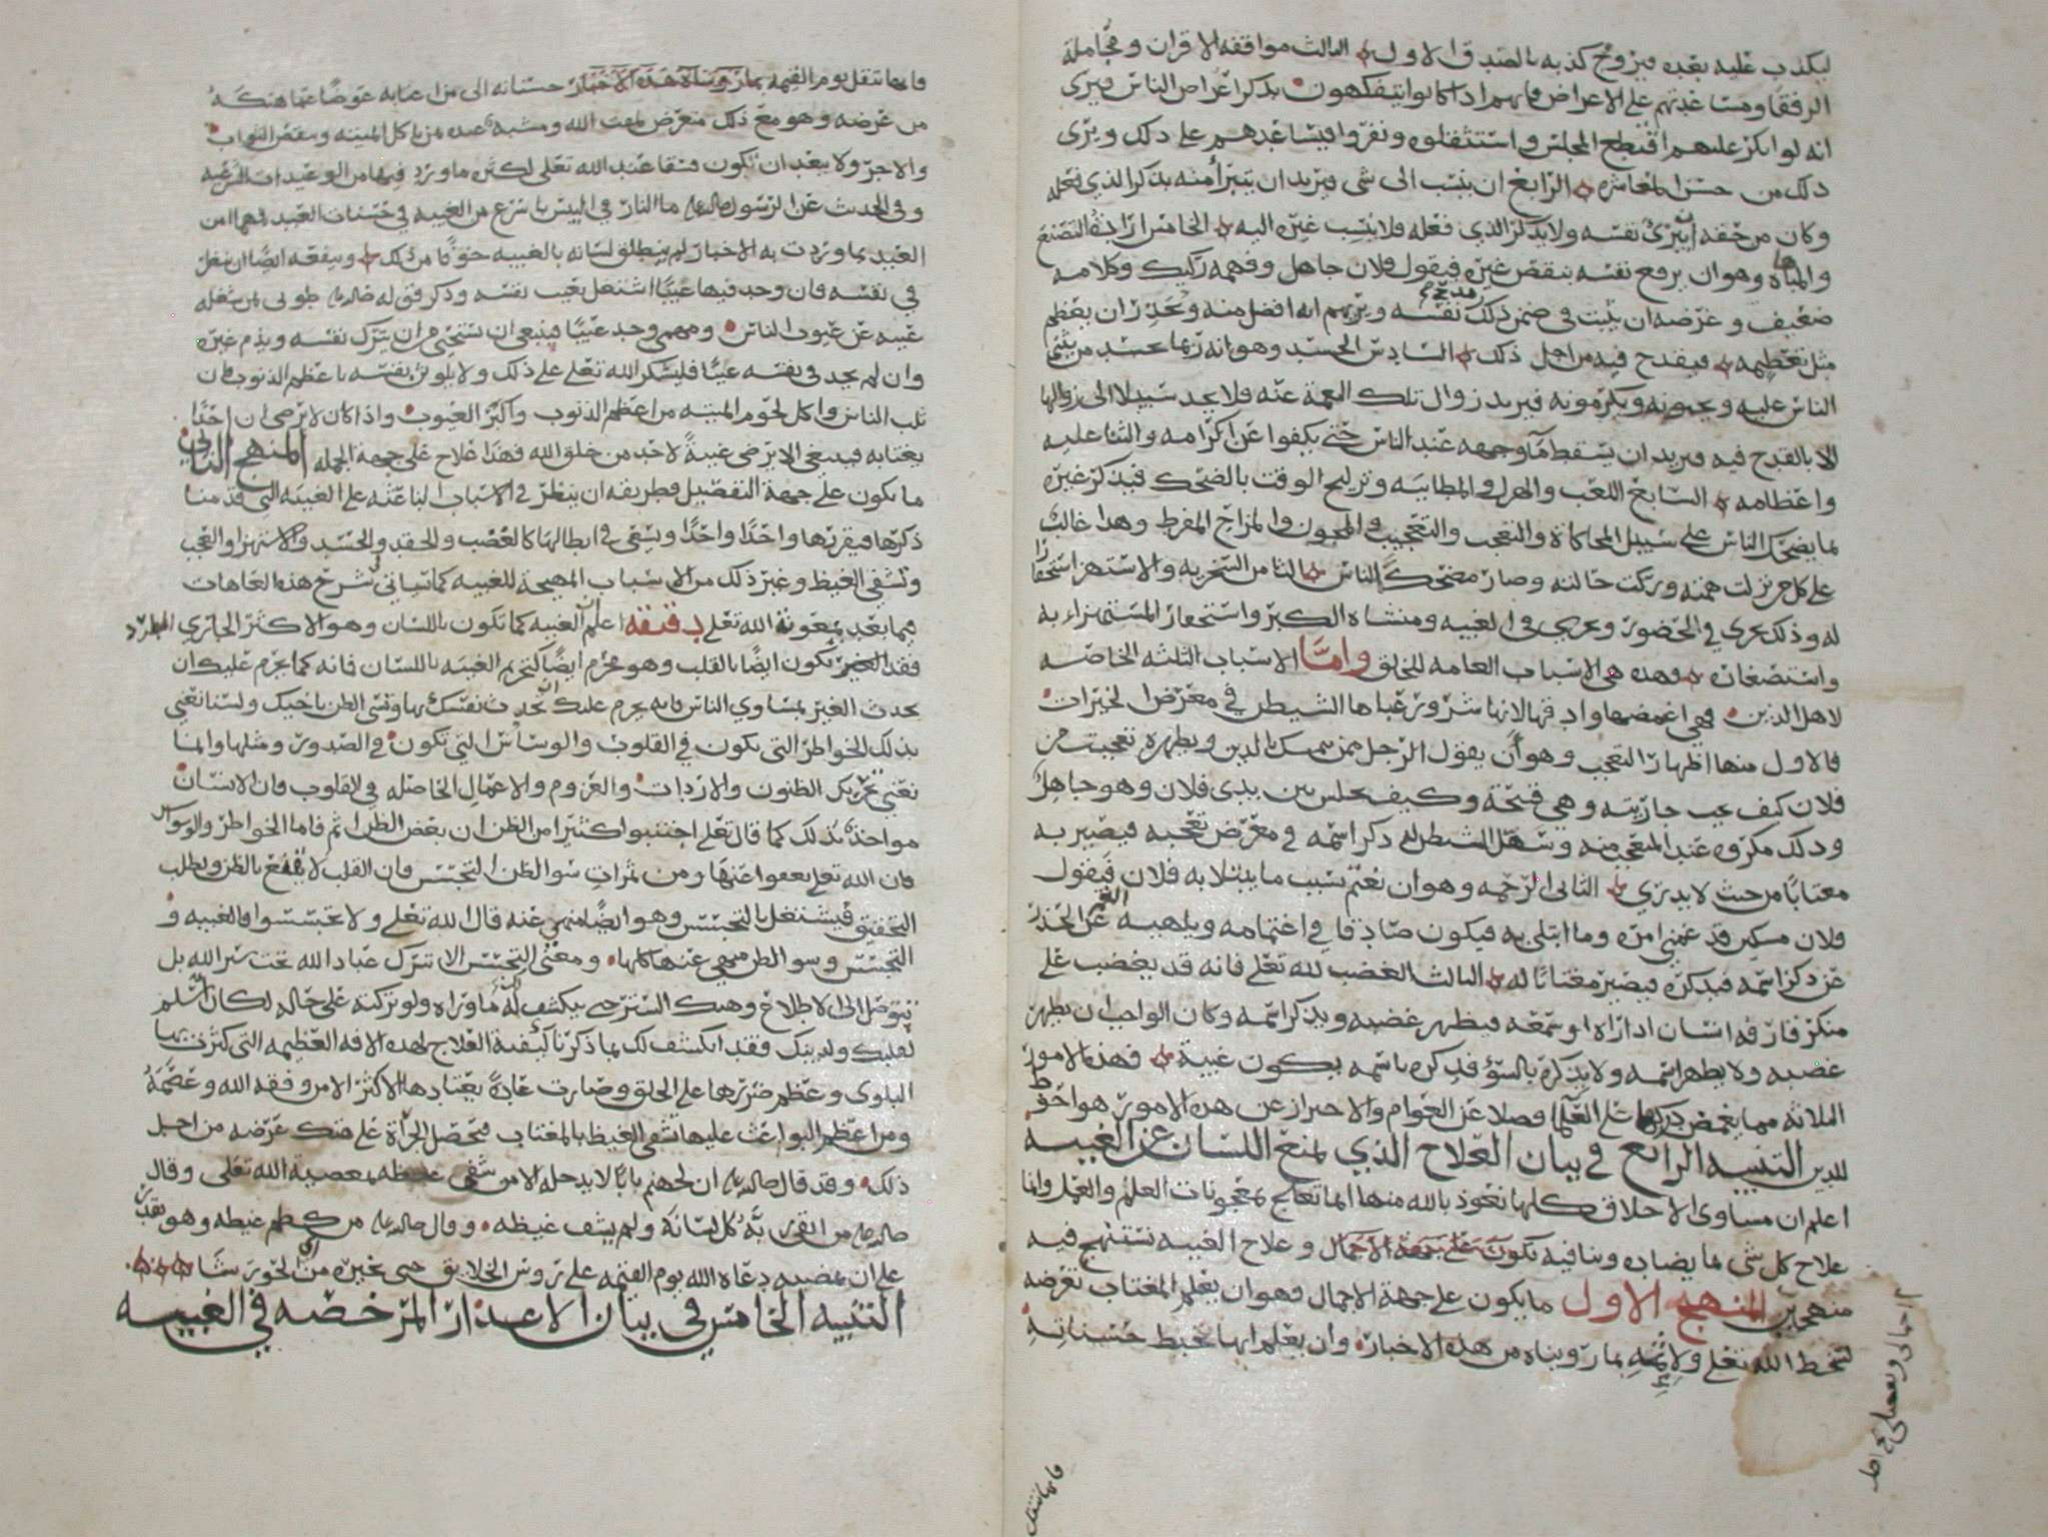 ليكذب عليه بعده فيروج كذبه بالصدق الاول الثالث موافقة الاقران ومجاملة
الرفقا ومساعدتهم على الاعراض فانهم اذا كانوا يتفكهون بذكر اعراض الناس فيرى
انه لو انكر عليهم اقتطع المجلس واستثقلوه ونفروا فيساعدهم على ذلك ويرى
ذلك من حسن المعاشره الرابع ان ينسب الى شي فيريد ان يتبرأ منه بذكر الذي فعله
وكان من حقه ان يبرئ نفسه ولا يذكر الذي فعله فلا ينسب غيره اليه الخامس ارادة التصنع
والمباهاه وهو ان يرفع نفسه بنقص غيره فيقول فلان جاهل وفهمه ركيك وكلامه
ضعيف وغرضه ان يثبت في ضمن ذلك نفسه ويريهم انه افضل منه ويحذر ان يعظم
مثل تعظيمه فيقدح فيه من اجل ذلك السادس الحسد وهو انه ربما يحسد من يثني
الناس عليه ويحبونه ويكرمونه فيريد زوال تلك النعمة عنه فلا يجد سبيلا الى زوالها
الا بالقدح فيه فيريد ان يسقط مآ وجهه عند الناس حتى يكفوا عن اكرامه والثنا عليه
واعظامه السابع اللعب والهزل والمطايبه وتزليج الوقت بالضحك فيذكر غيره
بما يضحك الناس على سبيل المحاكاة والتعجب والتعجيب والمجون والمزاح المفرط وهذا غالب
على كل من نزلت همته وركت حالته وصار مضحكة الناس الثامن السخريه والاستهزا استحقارا
له وذلك يجري في الحضور ويجري في الغيبه ومنشاه الكبر واستحقار المستهزاء به
واستصغاره وهذه هي الاسباب العامه للخلق واما الاسباب الثلثه الخاصه
لاهل الدين فهي اغمضها وادقها لانها شرور غباها الشيطن في معرض الخيرات
فالاول منها اظهار التعجب وهو أن يقول الرجل ممن يتمسك بالدين ويظهره تعجبت من
فلان كيف يحب جاريته وهي قبيحة وكيف يجلس بين يدي فلان وهو جاهل
وذلك مكروه عند المتعجب منه وسهل الشيطن له ذكر اسمه في معرض تعجبه فيصير به
مغتابا من حيث لا يدري الثاني الرحمه وهو ان يغتم بسبب ما يبتلا به فلان فيقول
فلان مسكين قد غمني امره وما ابتلي به فيكون صادقا في اغتمامه ويلهيه الغم عن الحذر
عن ذكر اسمه فيذكره فيصير مغتابا له الثالث الغضب لله تعلى فانه قد يغضب على
منكر قارفه انسان اذا راه او سمعه فيظهر غضبه ويذكر اسمه وكان الواجب ان يظهر
غضبه ولا يظهر اسمه ولا يذكره بالسؤ فذكره باسمه يكون غيبة فهذه الامور
الثلاثه مما يغمض دركها على العلما فضلا عن العوام والاحتراز عن هذه الامور هو احوط
للدين التنبيه الرابع في بيان العلاج الذي يمنع اللسان عن الغيبه
اعلم ان مساوى الاخلاق كلها نعوذ بالله منها انما تعالج بمعجونات العلم والعمل وانما
علاج كل شي بما يضاده وينافيه وعلاج الغيبه نستنهج فيه
منهجين المنهج الاول ما يكون على جهة الاجمال فهو ان يعلم المغتاب تعرضه
لسخط الله تعلى ولاثمه بما رويناه من هذه الاخبار وان يعلم انها تحبط حسناته
اجمالى وتفصيلي
فانها تنقل
فانها تنقل يوم القيمه بما رويناه هذه الاخبار حسناته الى من اغتابه عوضا عما هتكه
من عرضه وهو مع ذلك متعرض لمقت الله ومشبه عنده بمن ياكل الميته وينقص الثواب
والاجر ولا يبعد ان تكون فسقا عند الله تعلى لكثره ما ورد فيها من الوعيدات
وفي الحديث عن الرسول ما النار في اليبس باسرع من الغيبه في حسنات العبد فمهما امن
العبد بما وردت به الاخبار لم ينطلق لسانه بالغيبه خوفا من ذلك وينفعه ايضا ان يتامل
في نفسه فان وجد فيها عيبا اشتغل بعيب نفسه وذكر قوله طوبى لمن شغله
عيبه عن عيوب الناس ومهما وجد عيبا فينبغي ان يستحيي من ان يترك نفسه ويذم غيره
وان لم يجد في نفسه عيبا فليشكر الله تعلى على ذلك ولا يلوثن نفسه باعظم الذنوب فان
ثلب الناس واكل لحوم الميته من اعظم الذنوب واكبر العيوب واذا كان لا يرضى ان احدا
يغتابه فينبغي الا يرضى غيبة لاحد من خلق الله فهذا علاج على جهة الجمله المنهج الثاني
ما يكون على جهة التفصيل فطريقه ان ينظر في الاسباب الباعثه على الغيبه التي قدمنا
ذكرها فيقررها واحدا واحدا ويسعى في ابطالها كالغضب والحقد والحسد والاستهزا والعجب
وتشفي الغيظ وغير ذلك من الاسباب المهيجة للغيبه كما سياتي شرح هذه العاهات
فيما بعد بمعونة الله تعلى دقيقه اعلم ان الغيبه كما تكون باللسان وهو الاكثر الجاري المطرد
فقد تكون ايضا بالقلب وهو محرم ايضا كتحريم الغيبه باللسان فانه كما يحرم عليك ان
تحدث الغير بمساوي الناس فانه يحرم عليك ان تحدث نفسك بها وتسي الظن باخيك ولسنا نعني
بذلك الخواطر التي تكون في القلوب والوساس التي تكون في الصدور ومثلها وانما
نعني تحريك الظنون والارادات والعزوم والاعمال الحاصله في القلوب فان الانسان
مواخذ بذلك كما قال تعلى اجتنبوا كثيرا من الظن ان بعض الظن اثم فاما الخواطر والوسواس
فان الله تعلى يعفوا عنها ومن ثمرات سو الظن التجسس فان القلب لا يقنع بالظن ويطلب
التحقيق فيشتغل بالتجسس وهو ايضا منهي عنه قال الله تعلى ولا تجسسوا فالغيبه و
التجسس وسو الظن منهي عنها كلها ومعنى التجسس الا تترك عباد الله تحت ستر الله بل
يتوصل الى الاطلاع وهتك الستر حتى ينكشف له ما وراه ولو تركته على حاله لكان اسلم
لقلبك ولدينك فقد انكشف لك بما ذكرنا كيفية العلاج لهذه الافه العظيمه التي كثرت بها
البلوى وعظم ضررها على الخلق وصارت عادة يعتادها الاكثر الا من وفقه الله وعصمه
ومن اعظم البواعث عليها تشفى الغيظ بالمغتاب فتحصل الجرأة على هتك عرضه من اجل
ذلك وقد قال ان لجهنم بابا لا يدخله الا من شفى غيظه بمعصية الله تعلى وقال
من اتقى ربه كل لسانه ولم يشف غيظه وقال من كظم غيظه وهو يقدر
على ان يمضيه دعاه الله يوم القيمه على رؤس الخلايق حتى يخيره من اي الحور شا
التنبيه الخامس في بيان الاعذار المرخصه في الغيبه